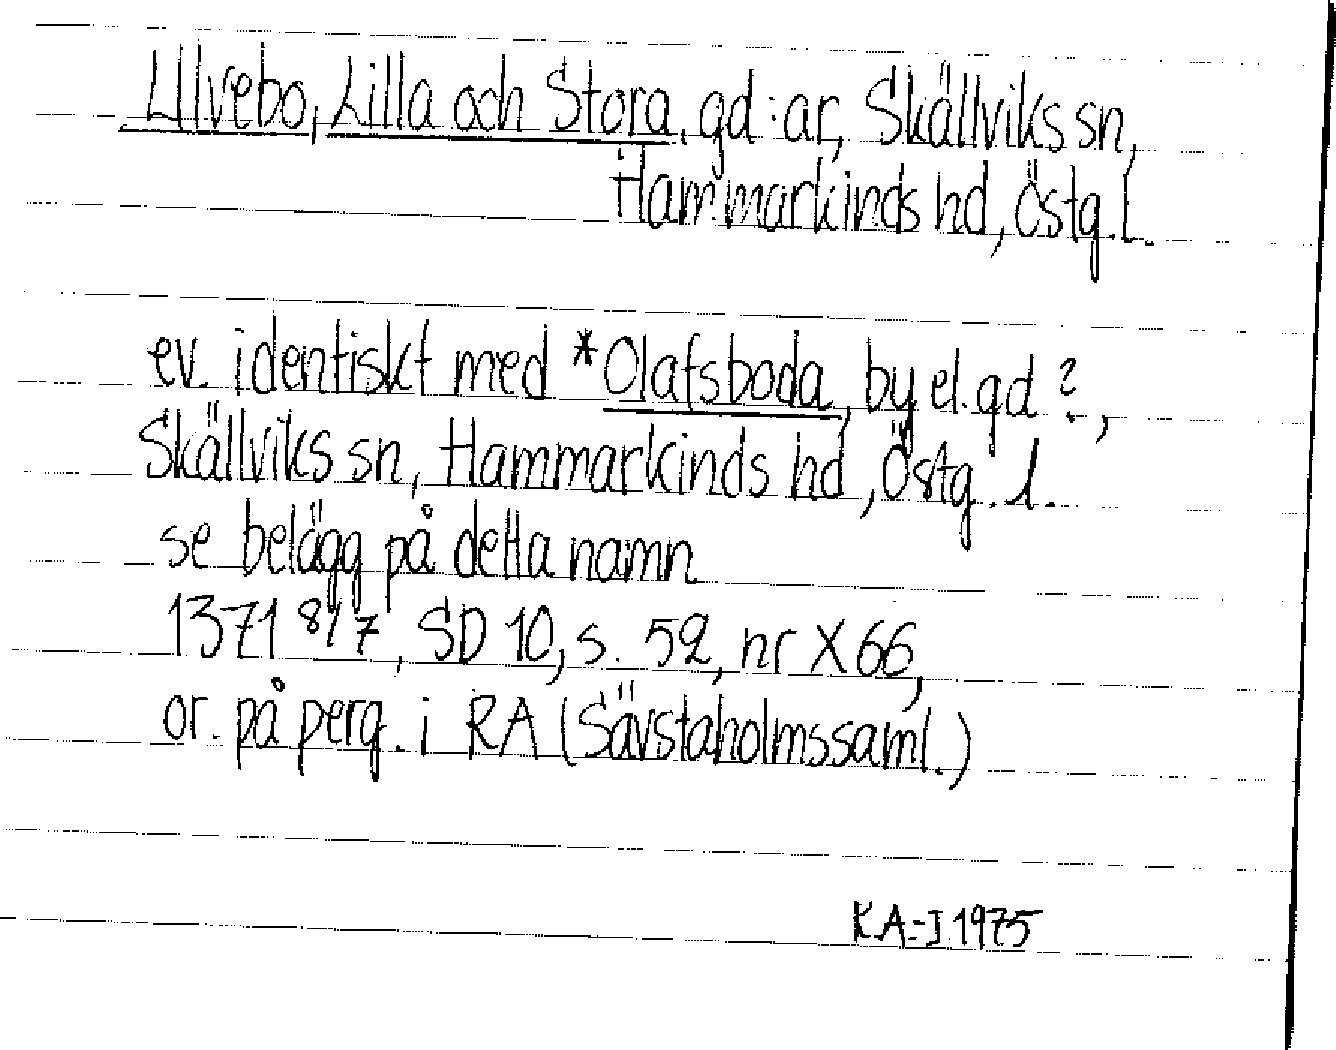 Ulvebo, Lilla och Stora, gd:ar, Skällviks sn,
Hammarkinds hd, Östg. l.
ev. identiskt med *Olafsboda, by el. gd?,
Skällviks sn, Hammarkinds hd, Östg. l.
se belägg på detta namn
1371 8/7, SD 10, s. 52, nr X 66,
or. på perg. i RA (Sävstaholmssaml.)
K.A-J 1975